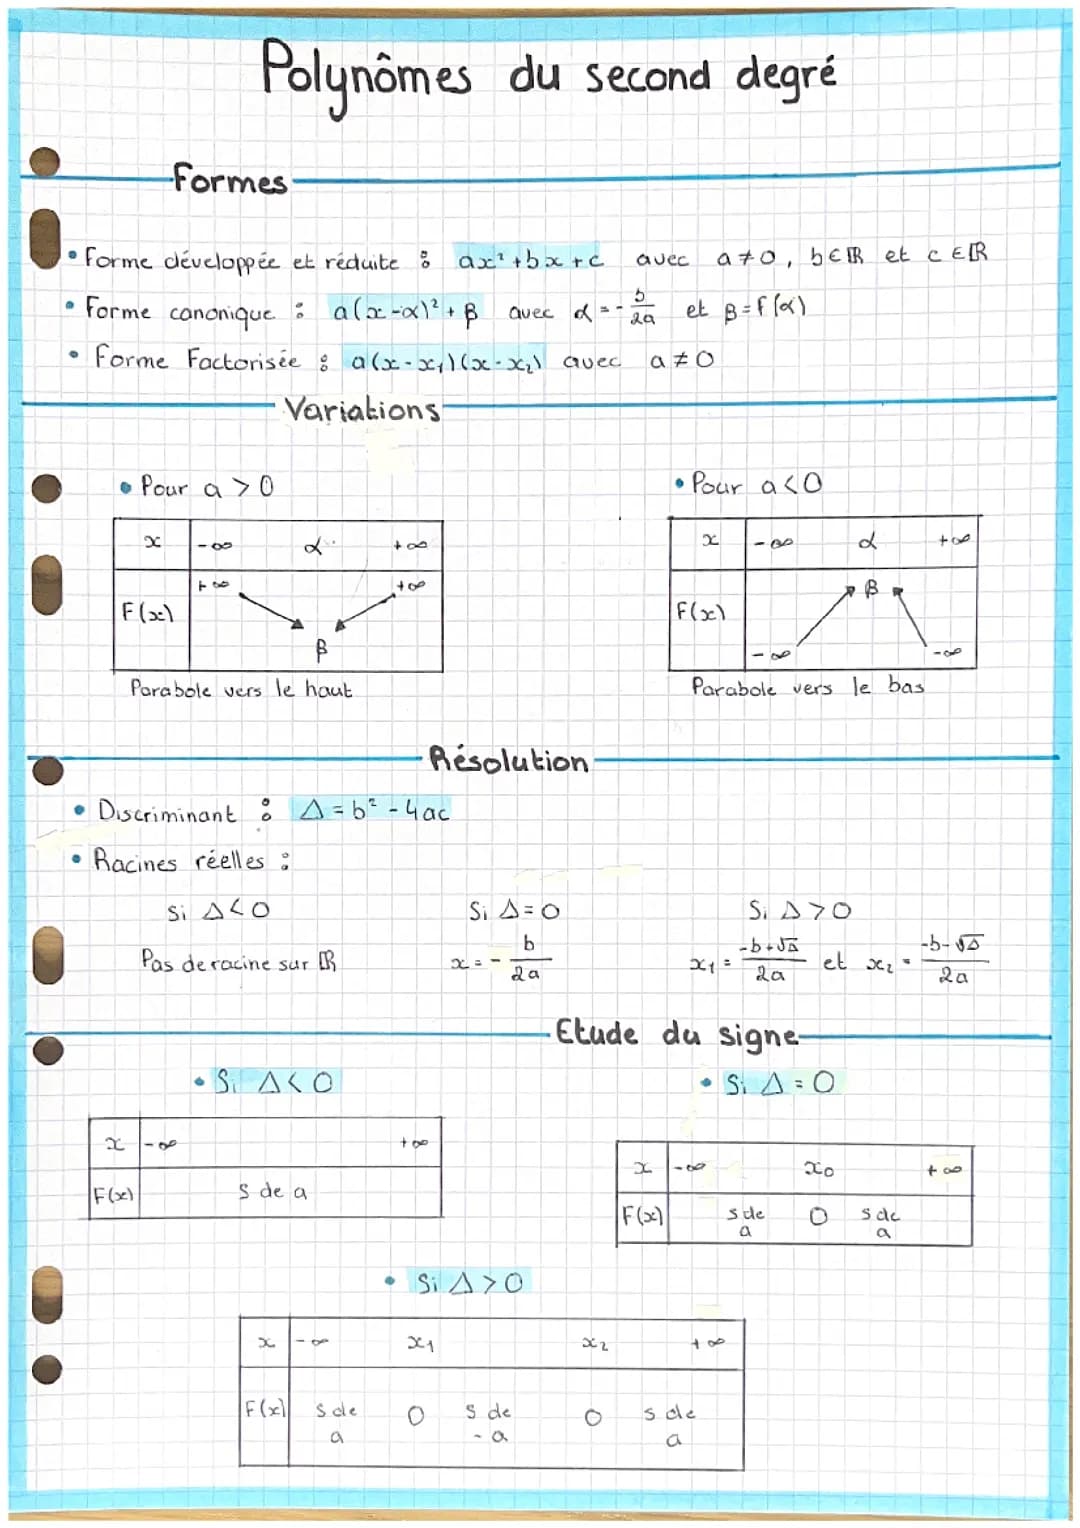 Polynômes du second degré
Formes
• Forme développée et réduite : ax² + bx + c avec a ≠ 0, b ∈ ℝ et c ∈ ℝ
• Forme canonique : a(x - α)² + β avec α = - b/2a et β = f(α)
• Forme Factorisée : a(x - x₁)(x - x₂) avec a ≠ 0
Variations
• Pour a > 0
x -∞ α +∞
F(x) +∞ β +∞
Parabole vers le haut
• Pour a < 0
x -∞ α +∞
F(x) -∞ β -∞
Parabole vers le bas
Résolution
• Discriminant : Δ = b² - 4ac
• Racines réelles :
Si Δ < 0
Pas de racine sur ℝ
Si Δ = 0
x = - b/2a
Si Δ > 0
x₁ = -b+√Δ/2a et x₂ = -b-√Δ/2a
Etude du signe
• Si Δ < 0
x -∞ +∞
F(x) s de a
• Si Δ = 0
x -∞ x₀ +∞
F(x) s de a 0 s de a
• Si Δ > 0
x -∞ x₁ x₂ +∞
F(x) s de a 0 s de -a 0 s de a